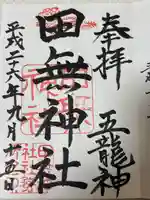 奉拝
五龍神
田無神社
平成二十六年九月十五日